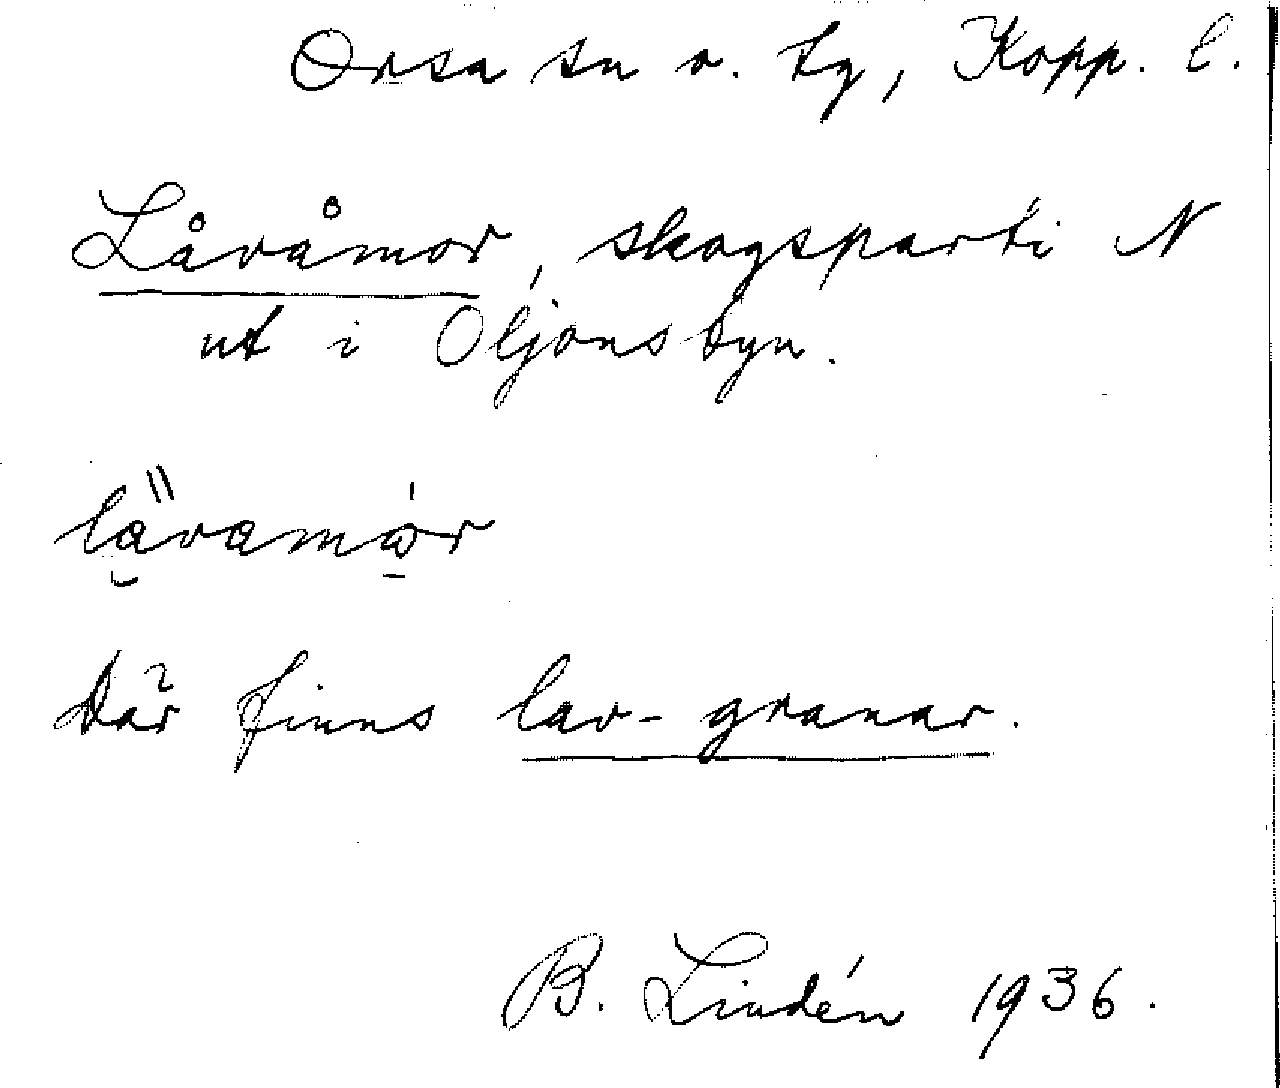 Orsa sn o. tg, Kopp. l.
Låvåmor, skogsparti N
ut i Oljonsbyn.
Där finns lav-granar.
B. Lindén 1936.